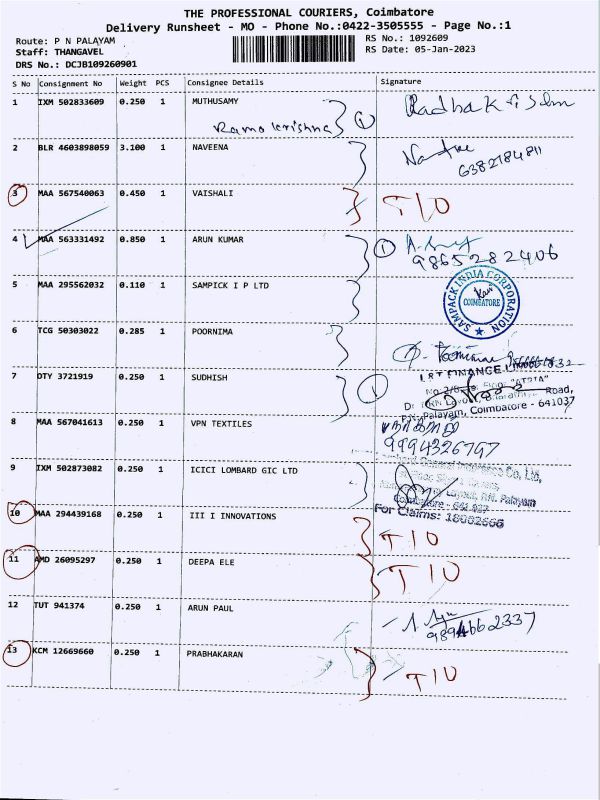 THE PROFESSIONAL COURIERS, Coimbatore
Delivery Runsheet - MO - Phone No.:0422-3505555 - Page No.:1
Route: P N PALAYAM
RS No.: 1092609
Staff: THANGAVEL
RS Date: 05-Jan-2023
DRS No.: DCJB109260901
S No Consignment No Weight PCS Consignee Details Signature
1 IXM 502833609 0.250 1 MUTHUSAMY
Ramakrishna 1
2 BLR 4603898059 3.100 1 NAVEENA
6382184811
3 MAA 567540063 0.450 1 VAISHALI T10
4 MAA 563331492 0.850 1 ARUN KUMAR 1
9865282406
5 MAA 295562032 0.110 1 SAMPICK I P LTD
SAMPACK INDIA CORPORATION
COIMBATORE
6 TCG 50303022 0.285 1 POORNIMA
7 DTY 3721919 0.250 1 SUDHISH 1
Road,
Palayam, Coimbatore - 641037
8 MAA 567041613 0.250 1 VPN TEXTILES
9994326797
9 IXM 502873082 0.250 1 ICICI LOMBARD GIC LTD
Co, Ltd,
Palayam
For Claims:
10 MAA 294439168 0.250 1 III I INNOVATIONS T10
11 AMD 26095297 0.250 1 DEEPA ELE T10
12 TUT 941374 0.250 1 ARUN PAUL
13 KCM 12669660 0.250 1 PRABHAKARAN T10